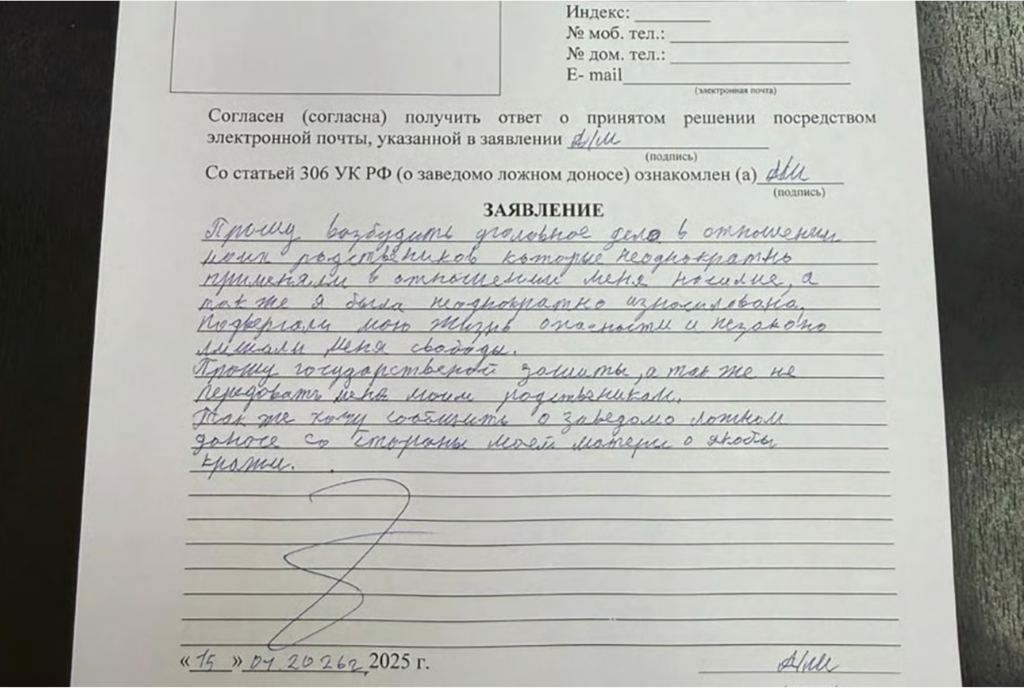 Индекс:
№ моб. тел.:
№ дом. тел.:
E- mail
(электронная почта)
Согласен (согласна) получить ответ о принятом решении посредством
электронной почты, указанной в заявлении
(подпись)
Со статьей 306 УК РФ (о заведомо ложном доносе) ознакомлен (а)
(подпись)
ЗАЯВЛЕНИЕ
Прошу возбудить уголовное дело в отношении
моих родствеников которые неоднократно
применяли в отношении меня насилие, а
так же я была неоднократно изнасилована,
Подвергали мою жизнь опасности и незаконо
лишали меня свободы.
Прошу государственой защиты, а так же не
передовать меня моим родственикам.
Так же хочу сообщить о заведомо ложном
доносе со стороны моей матери о якобы
кражи.
« 15 » 01.2026г. 2025 г.